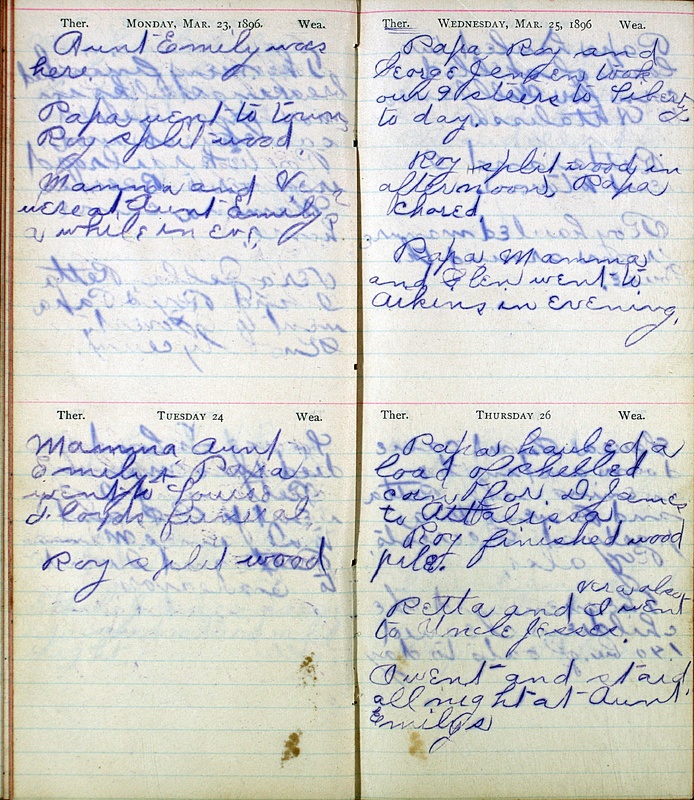 Ther. MONDAY, MAR. 23, 1896. Wea.
Aunt Emily was
here.
Papa went to town
Roy split wood
Mamma and Vera
were at Aunt Emily
a while in eve.
Ther. TUESDAY 24 Wea.
Mamma Aunt
Emily + Papa
went to Louise
Floyds funeral
Roy split wood
Ther. WEDNESDAY, MAR. 25, 1896 Wea.
Papa Roy and
George Jensen took
our 9 steers to Liberty
to day.
Roy split wood in
afternoon Papa
chored
Papa Mamma
and Glen went to
Aikins in evening.
Ther. THURSDAY 26 Wea.
Papa hauled a
load of shelled
corn for D. James
to Attalissa
Roy finished wood
pile.
Vera also
Retta and I went
to Uncle Jesses.
I went and staid
all night at Aunt
Emilys